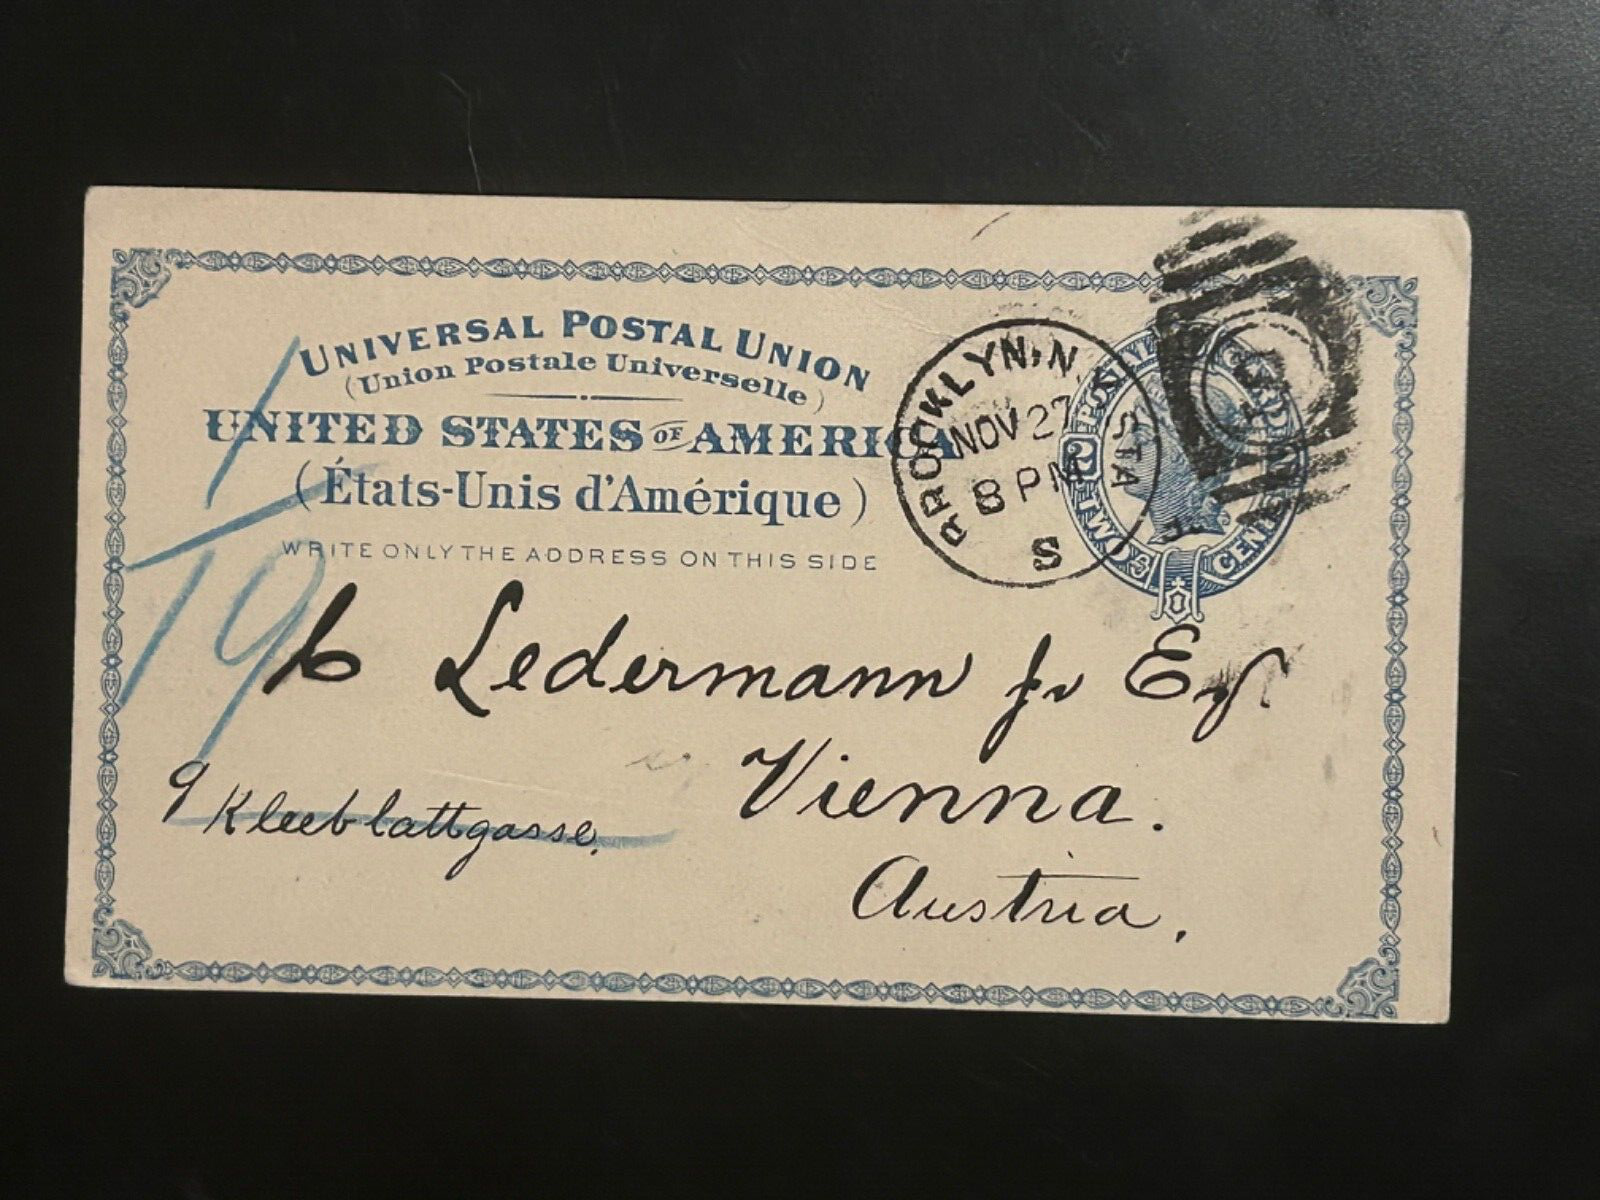 UNIVERSAL POSTAL UNION
(Union Postale Universelle)
UNITED STATES OF AMERICA
(États-Unis d'Amérique)
WRITE ONLY THE ADDRESS ON THIS SIDE
BROOKLYN, N.Y. STA
NOV 27
8 PM
S
POSTAL CARD
2
TWO CENTS
1
19
Ledermann jr Esq.
Vienna.
9 Kleeblattgasse.
Austria.